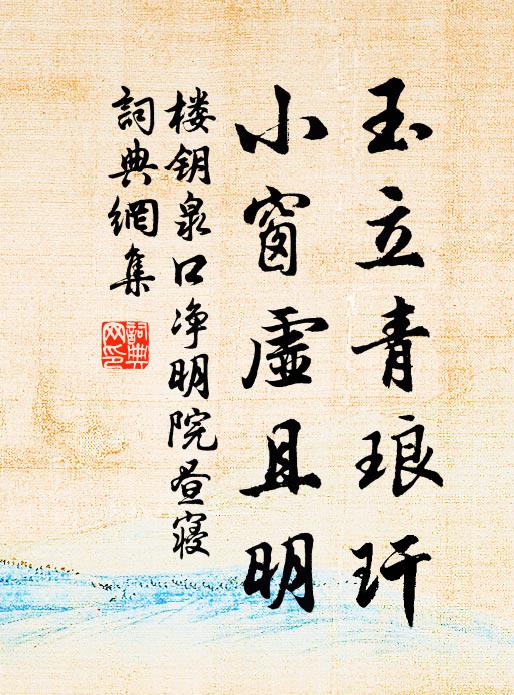 玉立青琅玕
小窗虚且明
楼钥泉口净明院昼寝
詞典網集
詞典
网印